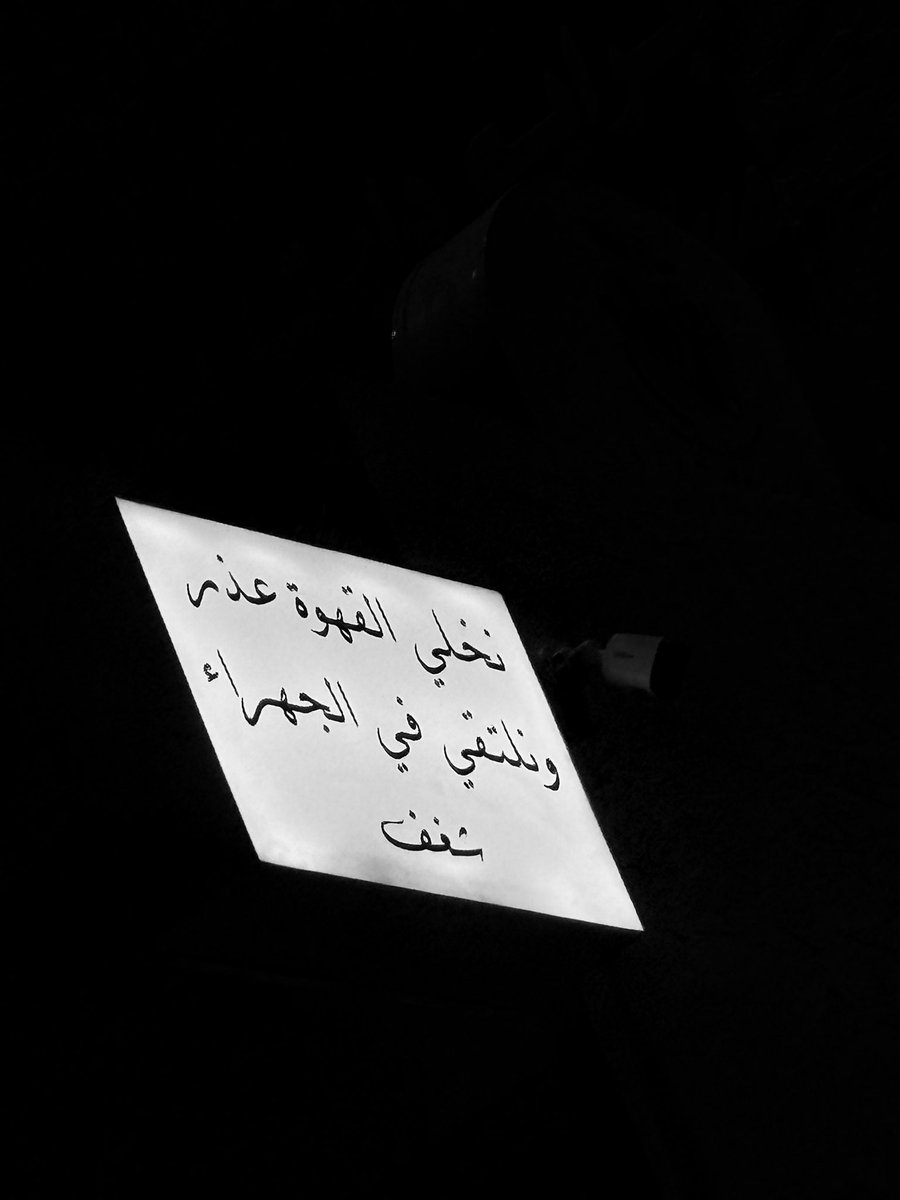 نخلي القهوة عذر
ونلتقي في الجهراء
شغف